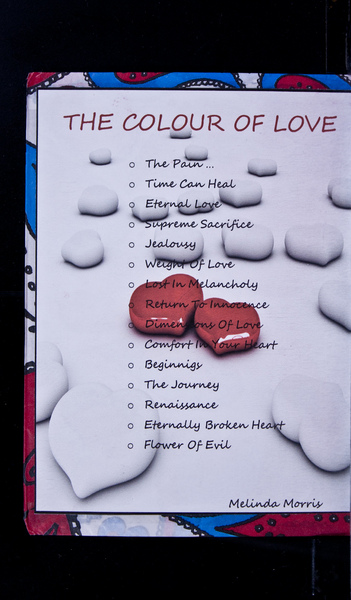 THE COLOUR OF LOVE
The Pain ...
Time Can Heal
Eternal Love
Supreme Sacrifice
Jealousy
Weight Of Love
Lost In Melancholy
Return To Innocence
Dimensions Of Love
Comfort In Your Heart
Beginnigs
The Journey
Renaissance
Eternally Broken Heart
Flower Of Evil
Melinda Morris